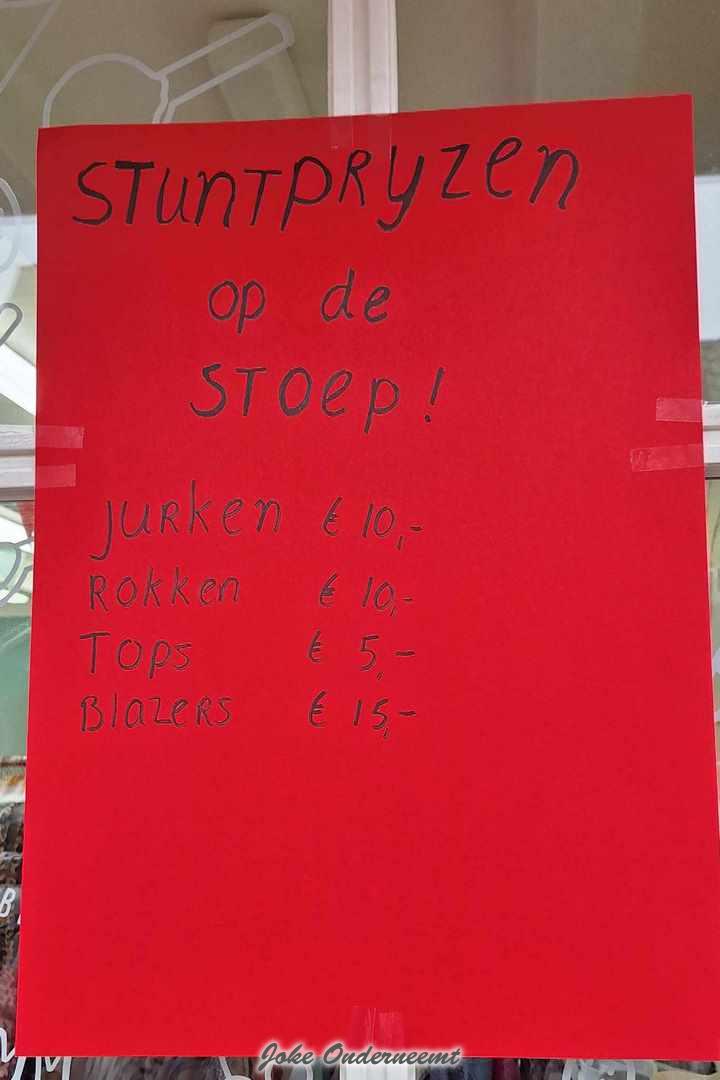 STUNTPRYZEN
op de
STOEP!
JURKEN € 10,-
ROKKEN € 10,-
TOPS € 5,-
BLAZERS € 15,-
Joke Onderneemt